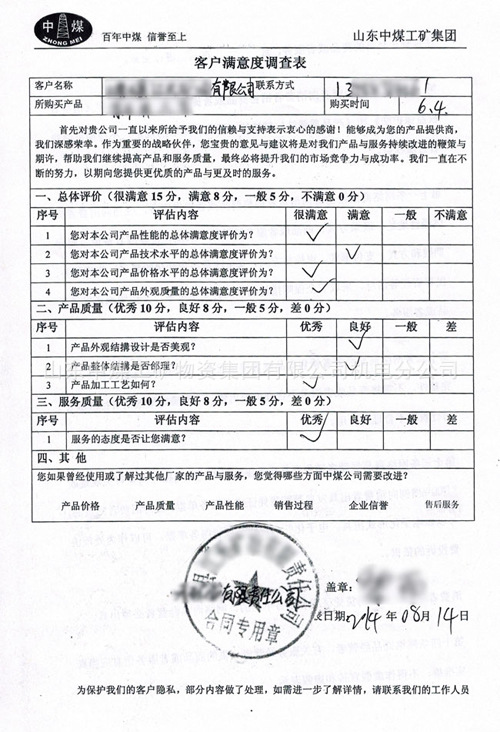 中 煤
ZHONG MEI
百年中煤 信誉至上
山东中煤工矿集团
客户满意度调查表
客户名称 有限公司 联系方式 13 1
所购买产品 购买时间 6.4.
首先对贵公司一直以来所给予我们的信赖与支持表示衷心的感谢！能够成为您的产品提供商，
我们深感荣幸。作为重要的战略伙伴，您宝贵的意见与建议将是对我们产品与服务持续改进的鞭策与
期许，帮助我们继续提高产品和服务质量，最终必将提升我们的市场竞争力与成功率。我们一直在不
断的努力，以期向您提供更优质的产品与更及时的服务。
一、总体评价（很满意 15 分，满意 8 分，一般 5 分，不满意 0 分）
序号 评估内容 很满意 满意 一般 不满意
1 您对本公司产品性能的总体满意度评价为？ ✓
2 您对本公司产品技术水平的总体满意度评价为？ ✓
3 您对本公司产品价格水平的总体满意度评价为？ ✓
4 您对本公司产品外观质量的总体满意度评价为？ ✓
二、产品质量（优秀 10 分，良好 8 分，一般 5 分，差 0 分）
序号 评估内容 优秀 良好 一般 差
1 产品外观结搆设计是否美观？ ✓
2 产品整体结搆是否合理？ ✓
3 产品加工工艺如何？ ✓
物资集团有限公司机电分公司
三、服务质量（优秀 10 分，良好 8 分，一般 5 分，差 0 分）
序号 评估内容 优秀 良好 一般 差
1 服务的态度是否让您满意？ ✓
四、其 他
您如果曾经使用或了解过其他厂家的产品与服务，您觉得哪些方面中煤公司需要改进？
产品价格 产品质量 产品性能 销售过程 企业信誉 售后服务
县 责任公司
有限责任公司
合同专用章
盖章：
日期：2014 年 08 月 14 日
为保护我们的客户隐私，部分内容做了处理，如需进一步了解详情，请联系我们的工作人员